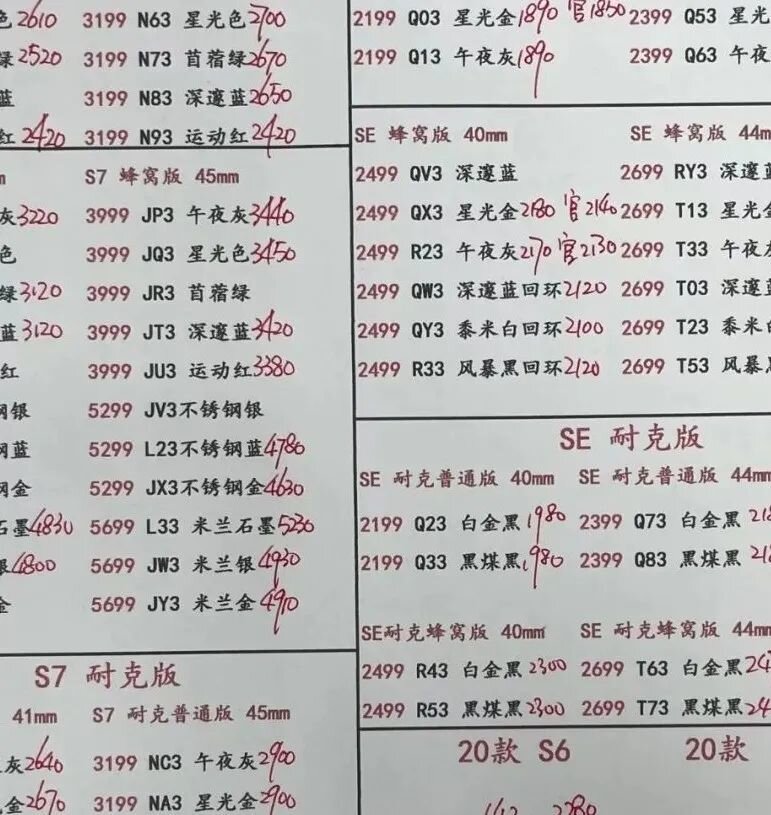 色2610 3199 N63 星光色2700
绿2520 3199 N73 苜蓿绿2670
蓝 3199 N83 深邃蓝2650
红2420 3199 N93 运动红2420
S7 蜂窝版 45mm
灰3220 3999 JP3 午夜灰3440
色 3999 JQ3 星光色3450
绿3120 3999 JR3 苜蓿绿
蓝3120 3999 JT3 深邃蓝3420
红 3999 JU3 运动红3380
钢银 5299 JV3不锈钢银
钢蓝 5299 L23不锈钢蓝4780
钢金 5299 JX3不锈钢金4630
石墨4830 5699 L33 米兰石墨5230
银4800 5699 JW3 米兰银4930
金 5699 JY3 米兰金4910
S7 耐克版
41mm S7 耐克普通版 45mm
灰2640 3199 NC3 午夜灰2900
金2670 3199 NA3 星光金2900
2199 Q03 星光金1890 官1850 2399 Q53 星光
2199 Q13 午夜灰1890 2399 Q63 午夜
SE 蜂窝版 40mm SE 蜂窝版 44mm
2499 QV3 深邃蓝 2699 RY3 深邃
2499 QX3 星光金2180 官2140 2699 T13 星光金
2499 R23 午夜灰2170 官2130 2699 T33 午夜
2499 QW3 深邃蓝回环2120 2699 T03 深邃
2499 QY3 黍米白回环2100 2699 T23 黍米白
2499 R33 风暴黑回环2120 2699 T53 风暴黑
SE 耐克版
SE 耐克普通版 40mm SE 耐克普通版 44mm
2199 Q23 白金黑1980 2399 Q73 白金黑
2199 Q33 黑煤黑1980 2399 Q83 黑煤黑
SE耐克蜂窝版 40mm SE 耐克蜂窝版 44mm
2499 R43 白金黑2300 2699 T63 白金黑
2499 R53 黑煤黑2300 2699 T73 黑煤黑
20款 S6 20款